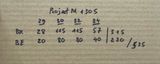 Projekt M 1305
29 30 32 34
BX 28 115 115 57 | 315
BE 20 80 80 40 | 220 / 535